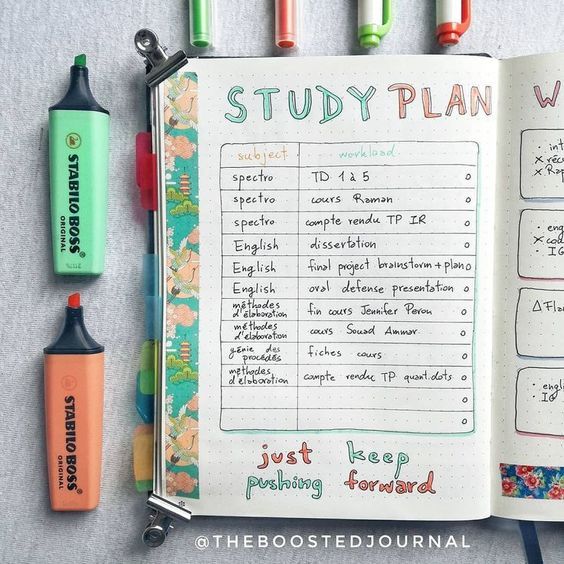 STUDY PLAN
subject workload
spectro TD 1 à 5 o
spectro cours Raman o
spectro compte rendu TP IR o
English dissertation o
English final project brainstorm + plan o
English oral defense presentation o
méthodes
d'élaboration fin cours Jennifer Peron o
méthodes
d'élaboration cours Souad Ammar o
génie des
procédés fiches cours o
méthodes
d'élaboration compte rendu TP quant.dots o
o
o
just keep
pushing forward
W
· int
x réc
x Rap
· eng
x cou
· IG
Δ Flan
· engl
· IG
STABILO BOSS
ORIGINAL
STABILO BOSS
ORIGINAL
@THEBOOSTEDJOURNAL